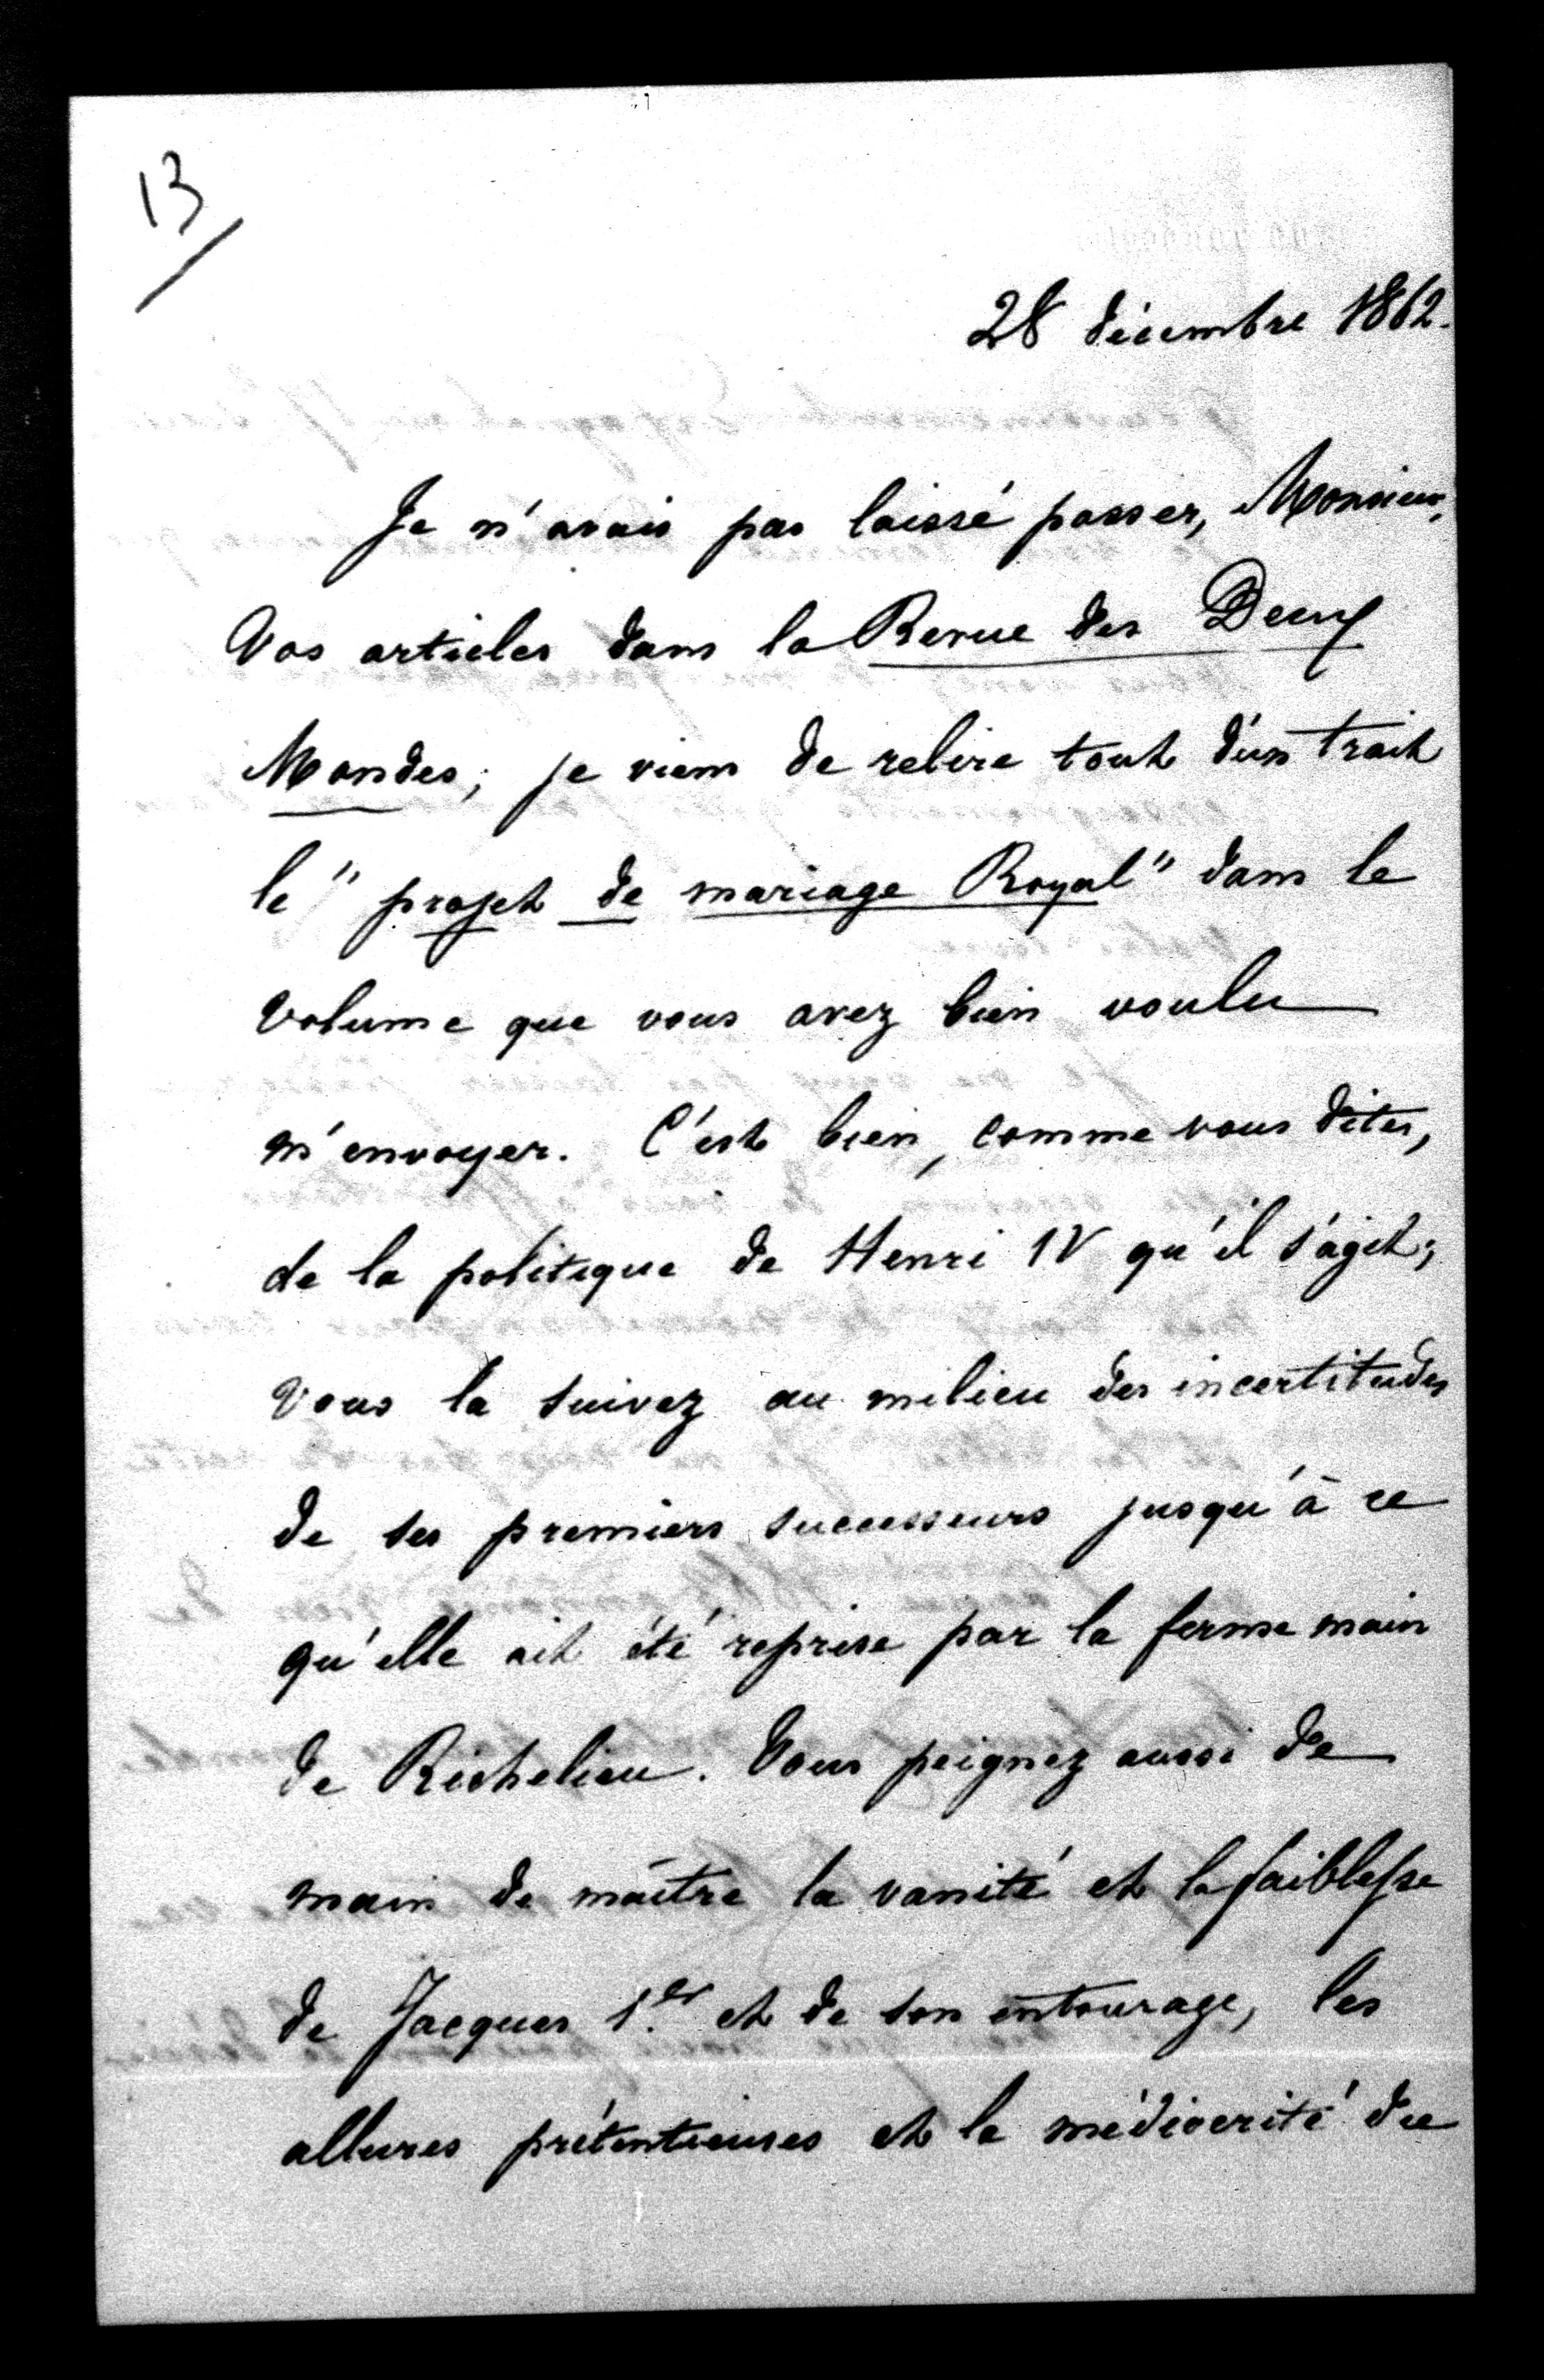 13
28 décembre 1862.
Je n'avais pas laissé passer, Monsieur,
Vos articles dans la Revue des Deux
Mondes; je viens de relire tout d'un trait
le "projet de mariage Royal" dans le
volume que vous avez bien voulu
m'envoyer. C'est bien, comme vous dites,
de la politique de Henri IV qu'il s'agit;
vous la suivez au milieu des incertitudes
de ses premiers successeurs jusqu'à ce
qu'elle ait été reprise par la ferme main
de Richelieu. Vous peignez aussi de
main de maître la vanité et la faiblesse
de Jacques 1er et de son entourage, les
allures prétentieuses et la médiocrité du